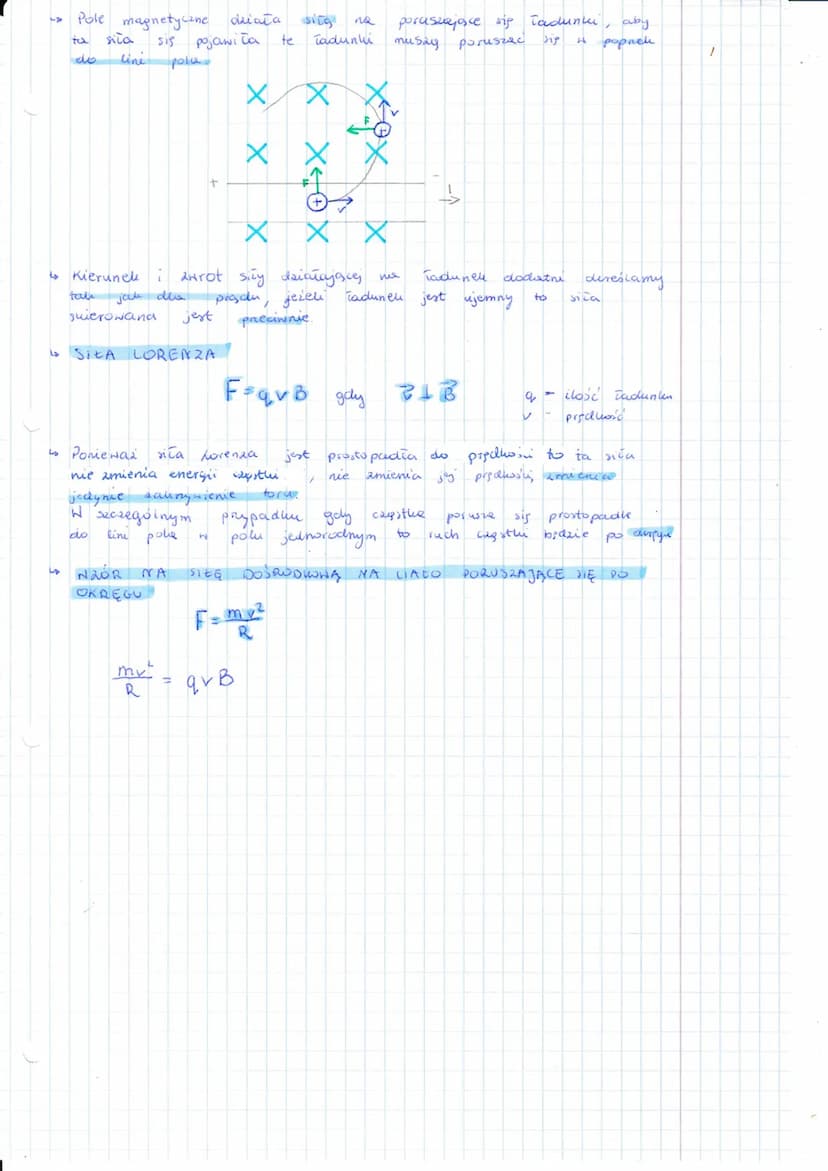 ↳ Pole magnetyczne działa siłą na poruszające się ładunki, aby
ta siła się pojawiła te ładunki muszą poruszać się w poprzek
do lini pola.
F
v
+
-
F
+
v
+
I
↳ Kierunek i zwrot siły działającej na ładunek dodatni określamy
tak jak dla prądu, jeżeli ładunek jest ujemny to siła
skierowana jest przeciwnie.
↳ SIŁA LORENZA
F = qvB gdy v⃗ ⊥ B⃗
q - ilość ładunku
v - prędkość
↳ Ponieważ siła Lorenza jest prostopadła do prędkości to ta siła
nie zmienia energii cząstki, nie zmienia jej prędkości, zmienia
jedynie zakrzywienie toru.
W szczególnym przypadku gdy cząstka porusza się prostopadle
do lini pola w polu jednorodnym to ruch cząstki będzie po okręgu
↳ WZÓR NA SIŁĘ DOŚRODKOWĄ NA CIAŁO PORUSZAJĄCE SIĘ PO
OKRĘGU
F = mv²/R
mv²/R = qvB